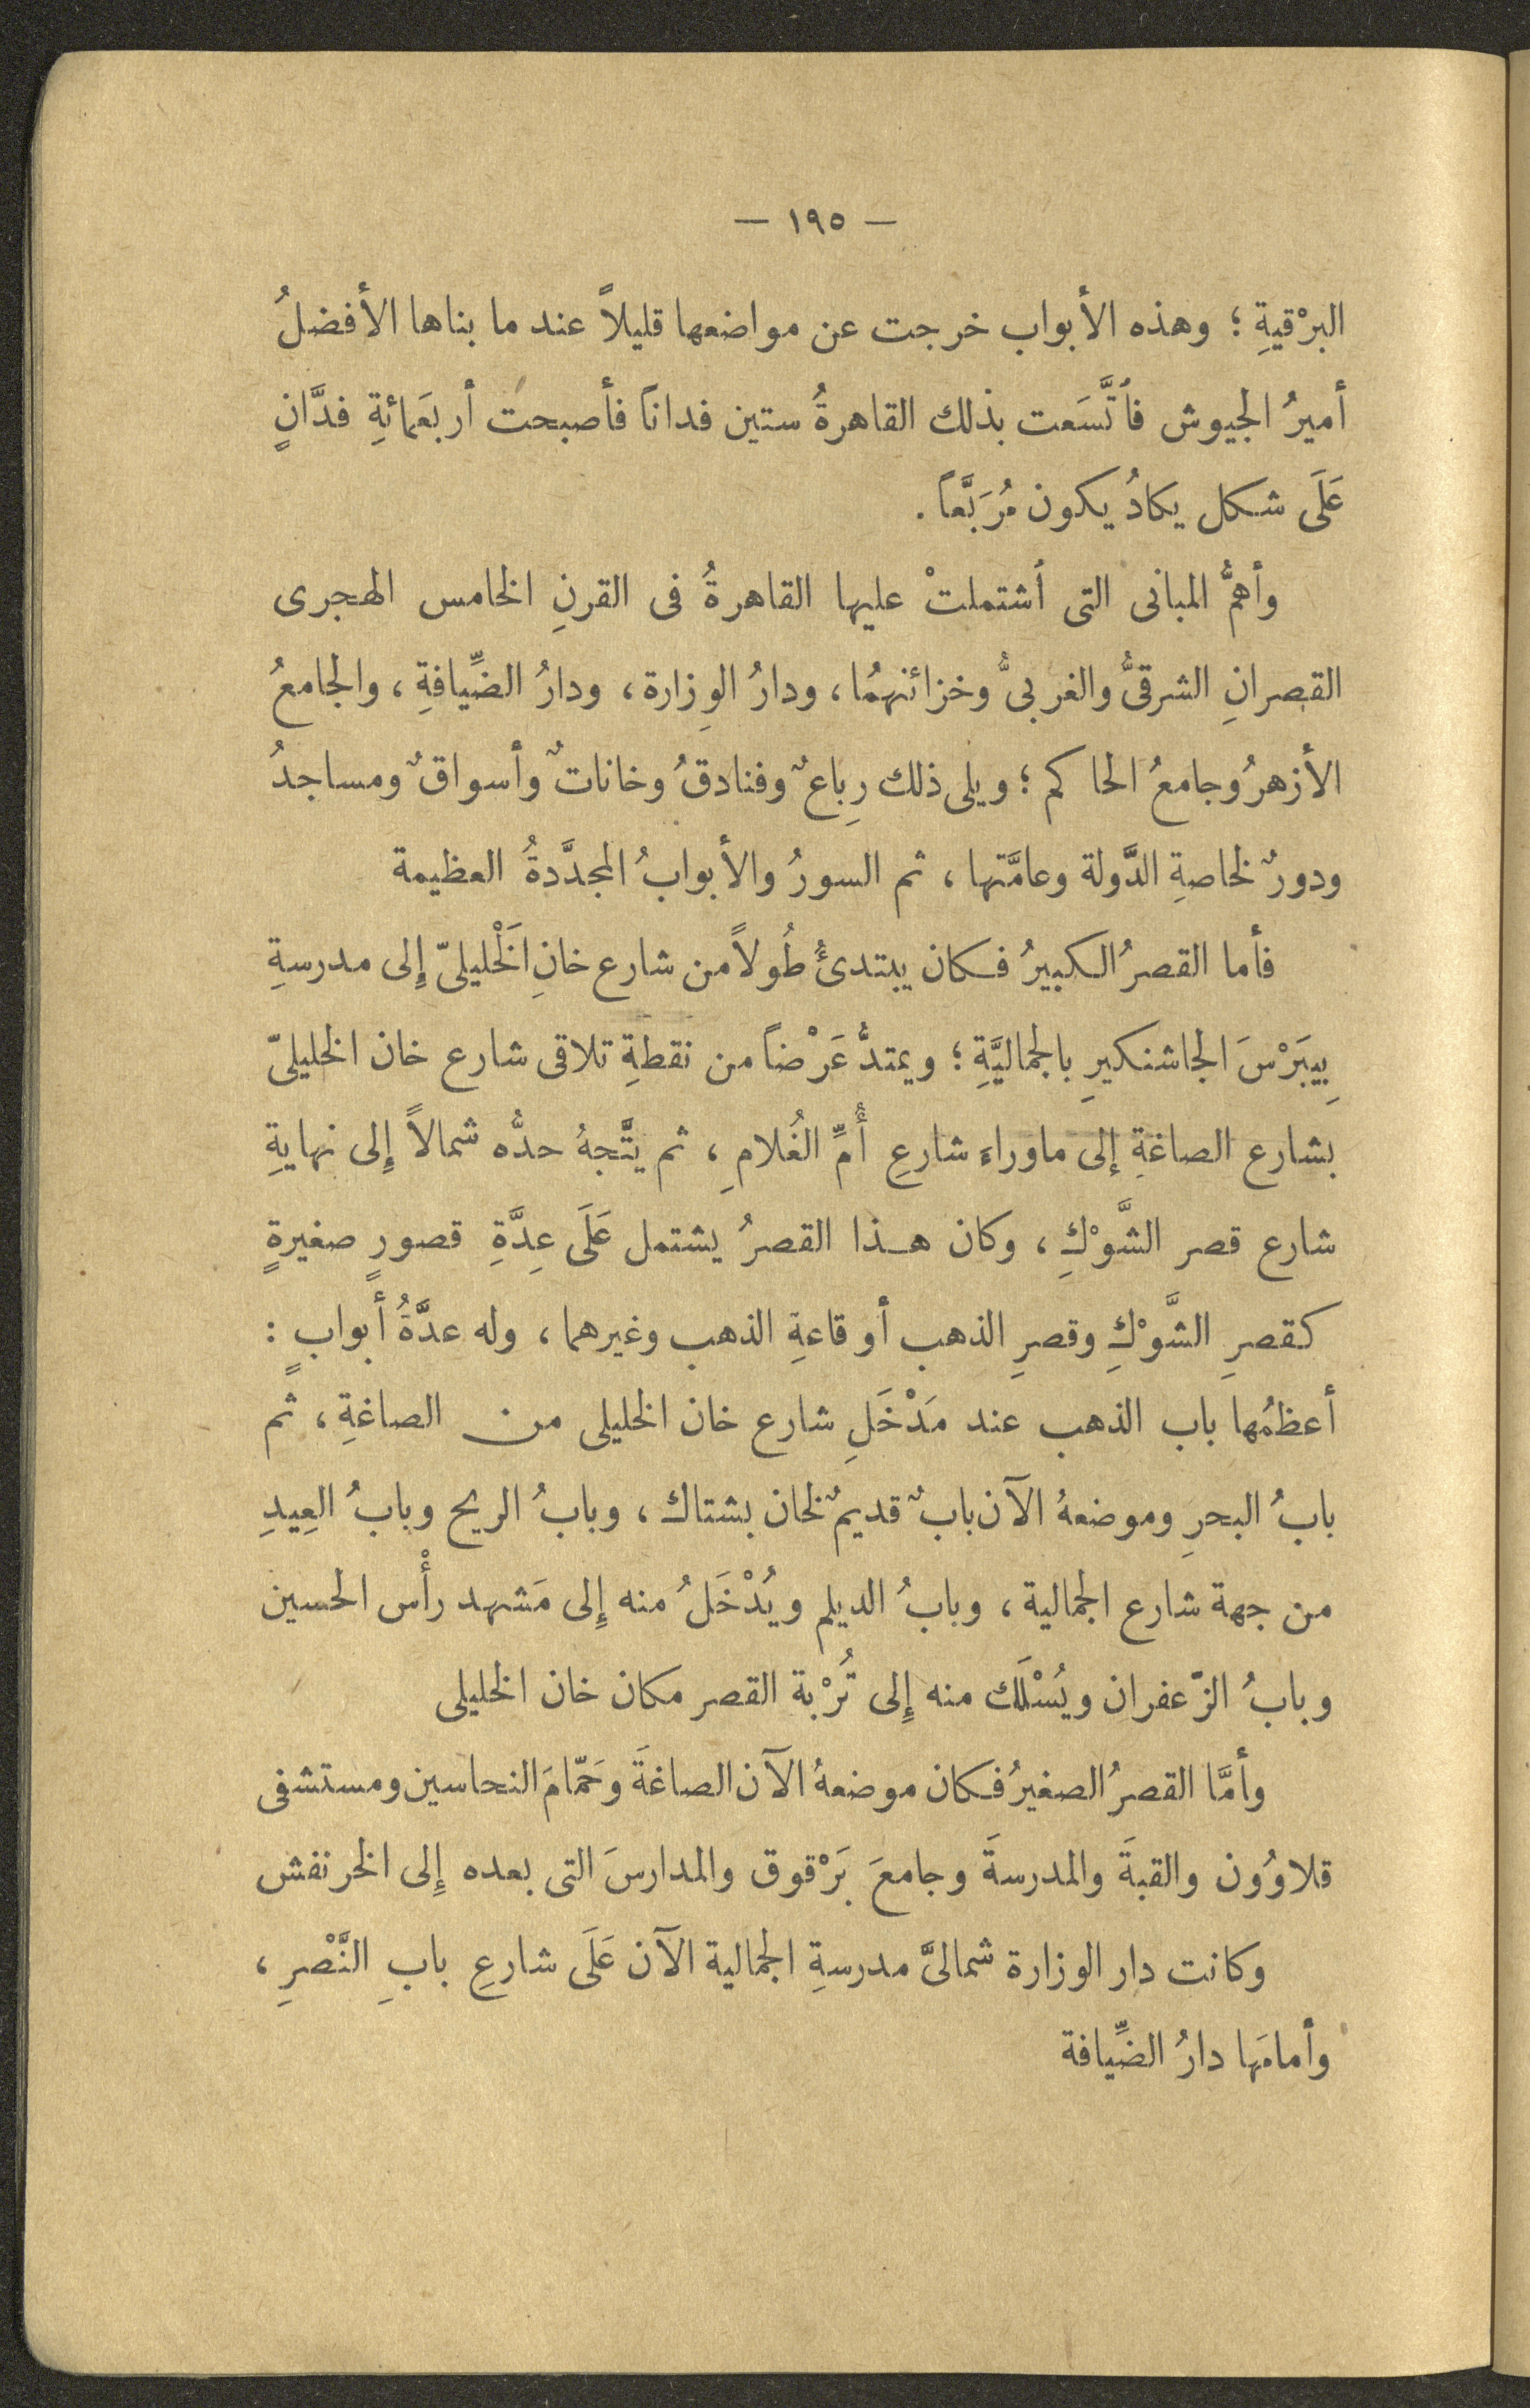 — ١٩٥ —
البرْقيةِ ؛ وهذه الأبواب خرجت عن مواضعها قليلاً عند ما بناها الأفضلُ
أميرُ الجيوش فاُتَّسَعت بذلك القاهرةُ ستين فداناً فأصبحت أربعَمائةِ فدَّانٍ
عَلَى شكل يكادُ يكون مُرَبَّعاً .
وأهمُّ المبانى التى اُشتملتْ عليها القاهرةُ فى القرنِ الخامس الهجرى
القصرانِ الشرقىُّ والغربىُّ وخزائنهمُا ، ودارُ الوِزارة ، ودارُ الضِّيافةِ ، والجامعُ
الأزهرُ وجامعُ الحاكم ؛ ويلى ذلك رِباعٌ وفنادقُ وخاناتٌ وأسواقٌ ومساجدُ
ودورٌ لخاصةِ الدَّولة وعامَّتها ، ثم السورُ والأبوابُ المجدَّدةُ العظيمة
فأما القصرُ الكبيرُ فكان يبتدئُ طُولاً من شارع خانِ اَلْخليلىّ إِلى مدرسةِ
بِيبَرْسَ الجاشنكيرِ بالجماليَّةِ ؛ ويمتدُّ عَرْضاً من نقطةِ تلاقى شارع خان الخليلىّ
بشارع الصاغةِ إلى ماوراءَ شارعِ أُمِّ الغُلامِ ، ثم يتَّجهُ حدُّه شمالاً إِلى نهايةِ
شارع قصر الشَّوْكِ ، وكان هذا القصرُ يشتمل عَلَى عِدَّةِ قصورٍ صغيرةٍ
كقصرِ الشَّوْكِ وقصرِ الذهب أو قاعةِ الذهب وغيرهما ، وله عدَّةُ أبوابٍ :
أعظمُها باب الذهب عند مَدْخَلِ شارع خان الخليلى من الصاغةِ ، ثم
بابُ البحرِ وموضعهُ الآن بابٌ قديمٌ لخان بشتاك ، وبابُ الريح وبابُ العِيدِ
من جهة شارع الجمالية ، وبابُ الديلم ويُدْخَلُ منه إِلى مَشهد رأْس الحسين
وبابُ الزّعفران ويُسْلَك منه إِلى تُرْبة القصر مكان خان الخليلى
وأمَّا القصرُ الصغيرُ فكان موضعهُ الآن الصاغةَ وحَمّامَ النحاسين ومستشفى
قلاوُون والقبةَ والمدرسةَ وجامعَ بَرْقوق والمدارسَ التى بعده إِلى الخرنفش
وكانت دار الوزارة شمالىَّ مدرسةِ الجمالية الآن عَلَى شارعِ بابِ النَّصْرِ ،
وأمامَها دارُ الضِّيافة